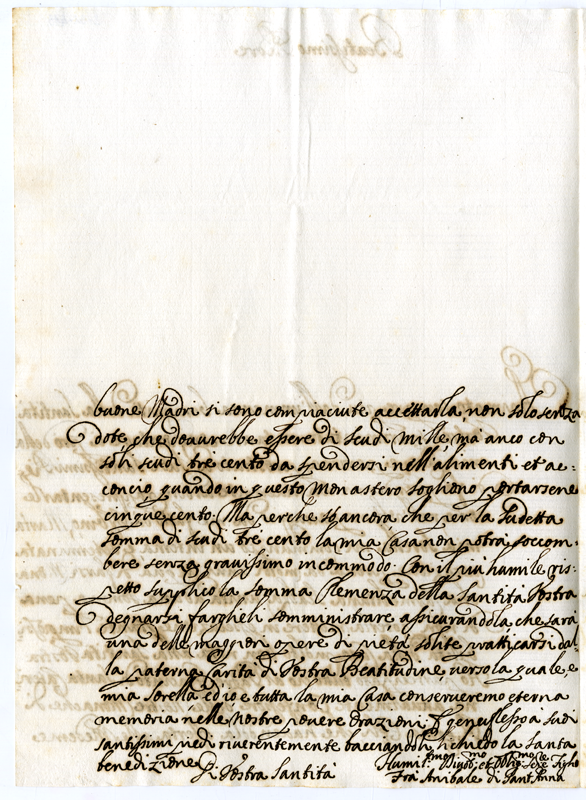 buone Madri si sono compiaciute accettarla non solo senza
dote, che dovurebbe essere di scudi mille, mà anco con
soli scudi trè cento da spendersi nell'alimenti et ac=
concio, quando in questo Monastero sogliono portarsene
cinque cento. Ma perche sò ancora che per la sudetta
somma di scudi trè cento la mia Casa non potrà soccom=
bere senza gravissimo incommodo. Con il più humile ris=
petto supplico la somma Clemenza della Santità Vostra
degnarsi farglieli somministrare assicurandola che sarà
una delle maggiori opere di pietà solite pratticarsi dal=
la paterna Carità di Vostra Beatitudine, verso la quale, e
mia sorella ed io e tutta la mia Casa conserveremo eterna
memoria nelle nostre povere orazioni. E genuflesso à suoi
santissimi piedi riverentemente bacciandoli, richiedo la santa
benedizione
Di Vostra Santità
Humil.mo Figlio
Frà Anibale di Sant'Anna